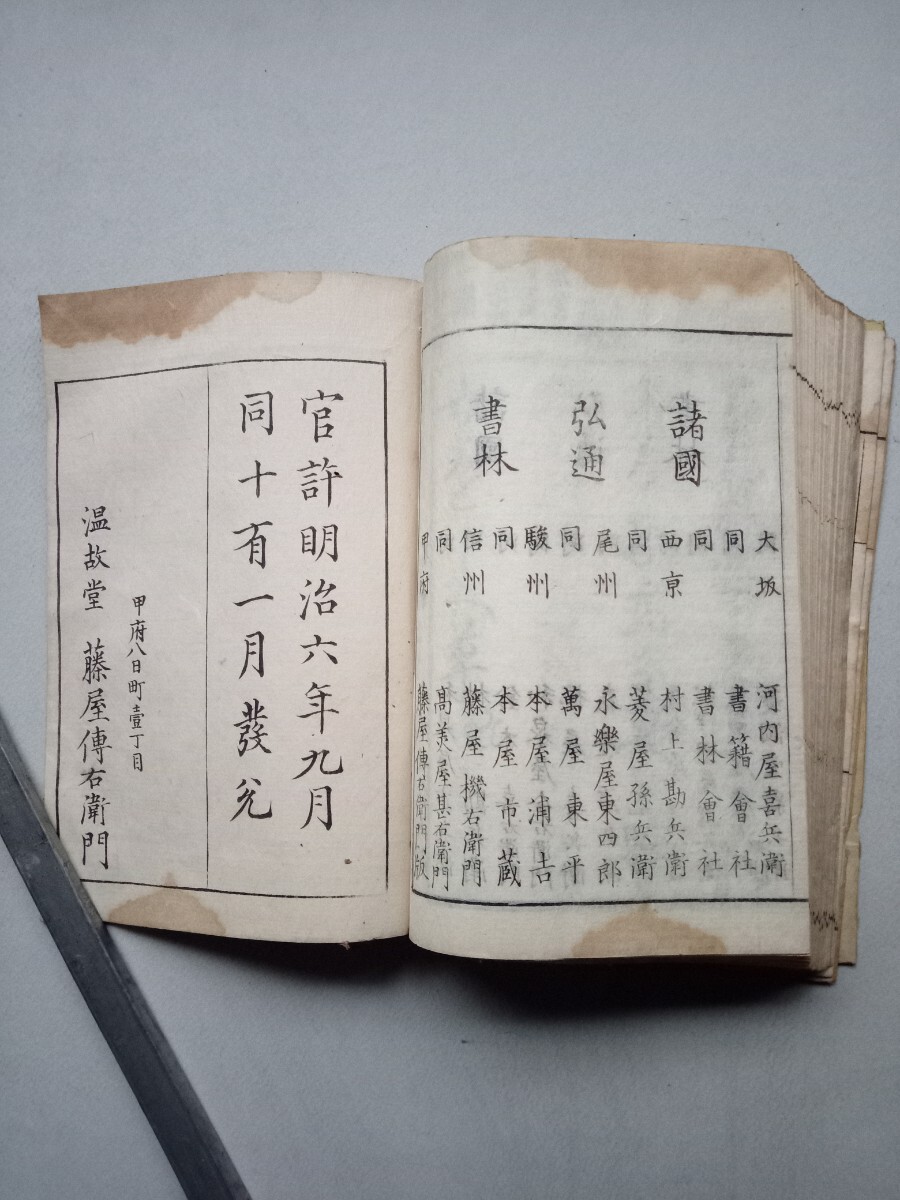 諸國
弘通
書林
大坂 河内屋喜兵衛
同 書籍會社
同 書林會社
西亰 村上勘兵衛
同 菱屋孫兵衛
尾州 永樂屋東四郎
同 萬屋東平
駿州 本屋浦吉
同 本屋市蔵
信州 藤屋機右衛門
同 髙美屋甚右衛門
甲府 藤屋傳右衛門版
官許明治六年九月
同十有一月發兊
甲府八日町壹丁目
温故堂 藤屋傳右衛門